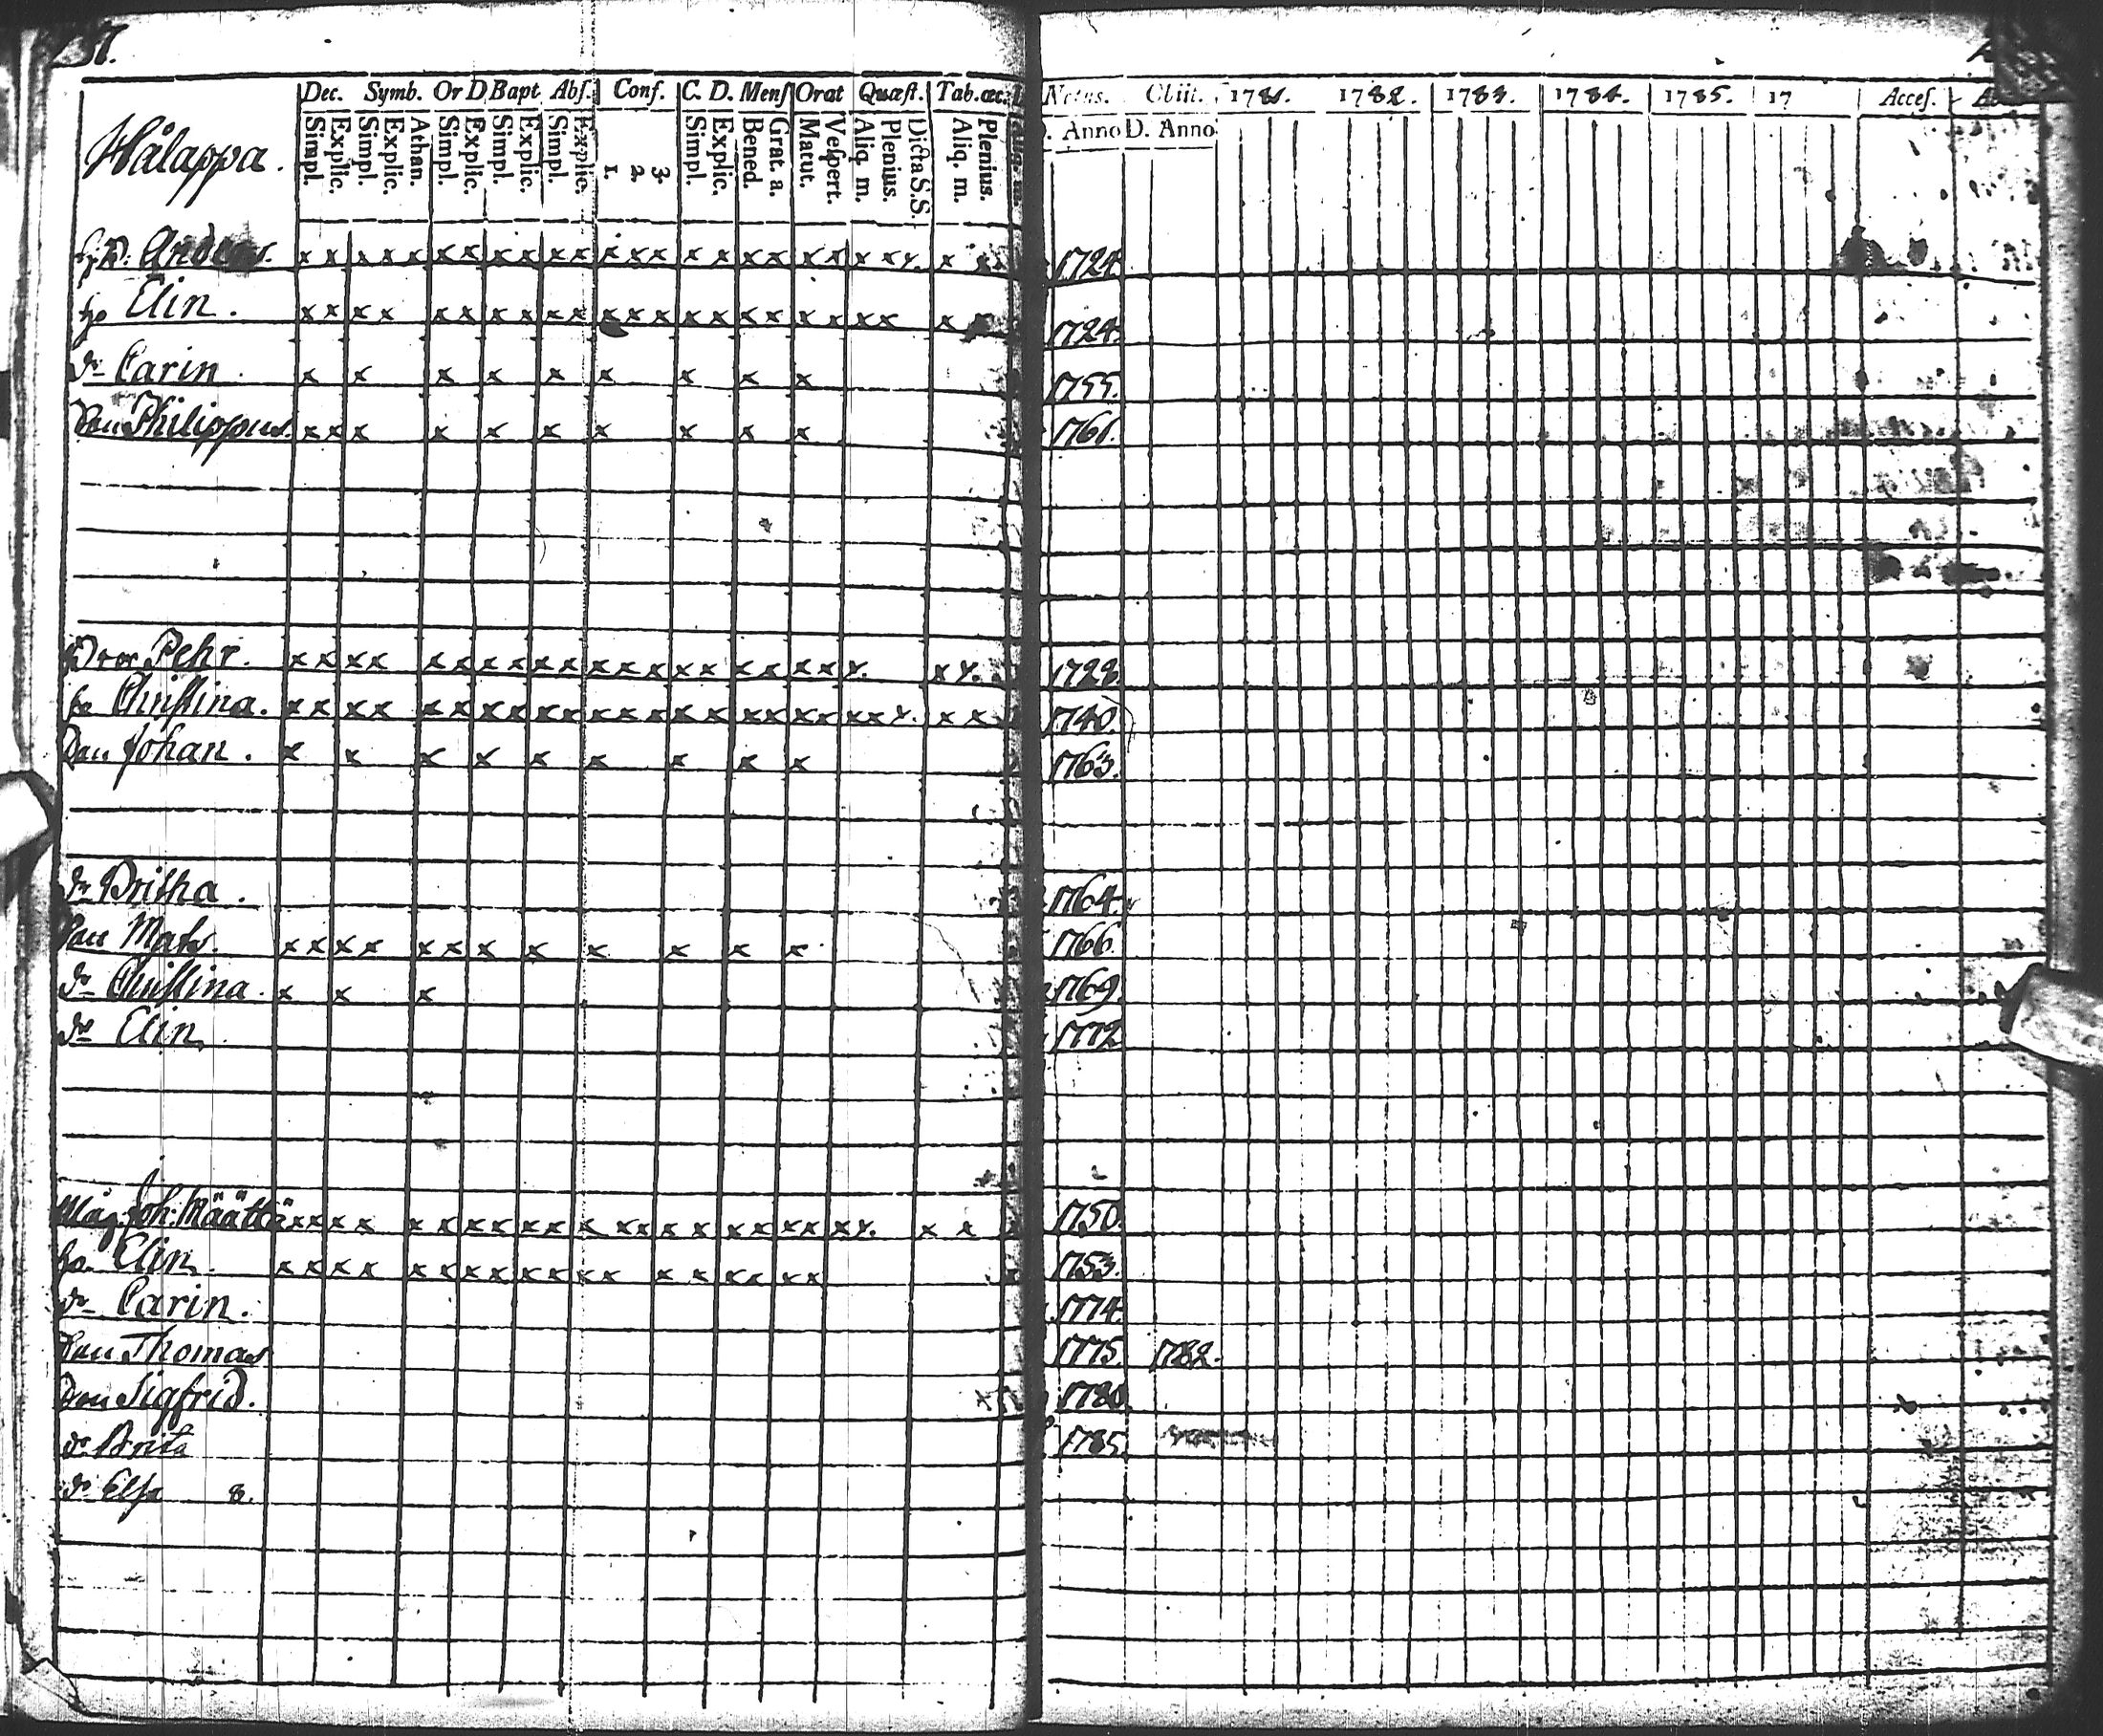 Dec. Symb. Or D Bapt Abſ. Conf. C. D. Menſ Orat Quæſt. Tab.œc. Natus. Obiit. 1781. 1782. 1783. 1784. 1785. 17 Acceſ.
Simpl. Explic. Simpl. Explic. Athan. Simpl. Explic. Simpl. Explic. Simpl. Explic. 1. 2. 3. Simpl. Explic. Bened. Grat. a. Matut. Veſpert. Aliq. m. Plenius. Dicta S.S. Aliq. m. Plenius. Anno D. Anno
Hålappa.
Anders. x x x x x x x x x x x x x x x x x x x x x x x 1724.
Elin. x x x x x x x x x x x x x x x x x x x x x 1724.
dr Carin. x x x x x x x x x 1755.
Son Philippus. x x x x x x x x x x 1761.
Pehr. x x x x x x x x x x x x x x x x x x x x x 1722.
Christina. x x x x x x x x x x x x x x x x x x x x x x x 1740.
Son Johan. x x x x x x x x x 1763.
dr Britha. 1764.
Son Mats. x x x x x x x x x x x x 1766.
dr Christina. x x x 1769.
dr Elin. 1772.
Måg Joh. Määttä x x x x x x x x x x x x x x x x x x x x x x 1750.
Elin. x x x x x x x x x x x x x x x x x x 1753.
dr Carin. 1774.
Son Thomas 1775. 1782.
Son Sigfrid. 1780.
dr Brita 1785.
dr Elsa 8.